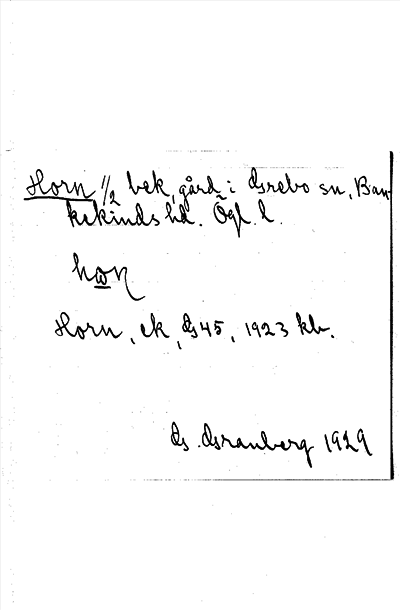 Horn 1/2 bek. gård i Grebo sn, Ban-
kekinds hd. Ögl. l.
hωɳ
Horn, ek, G45, 1923 kb.
G. Granberg 1929